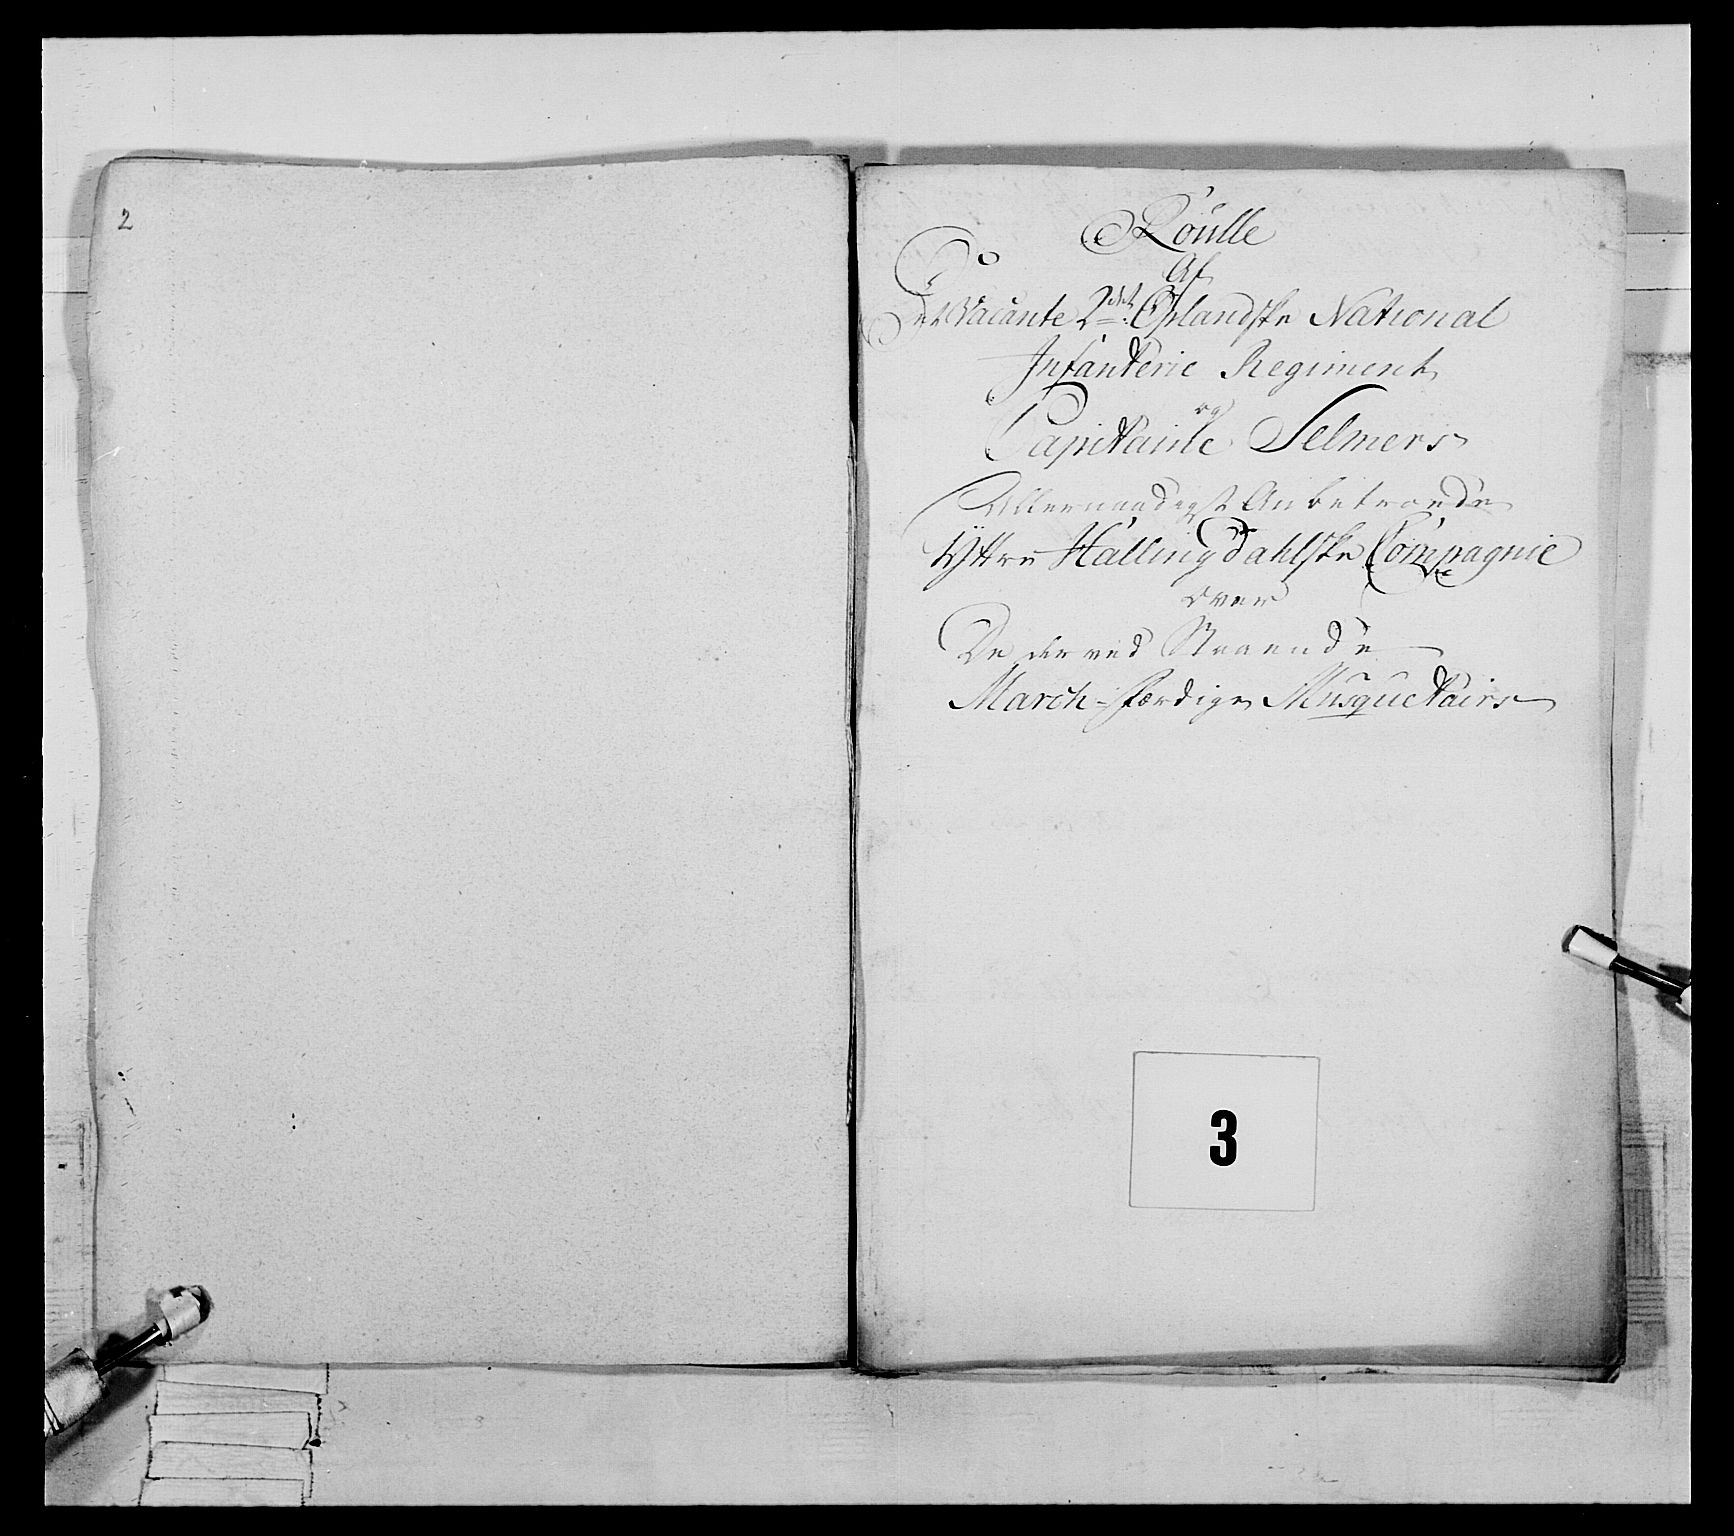 2
Roulle
Af
Det Vacante 2det Oplandske National
Infanterie Regiment
og
Capitaine Selmers
Allernaadigst Anbetroede
Yttre Hallingdahlske Compagnie
over
De der ved Staaende
March-færdige Musquetairs
3